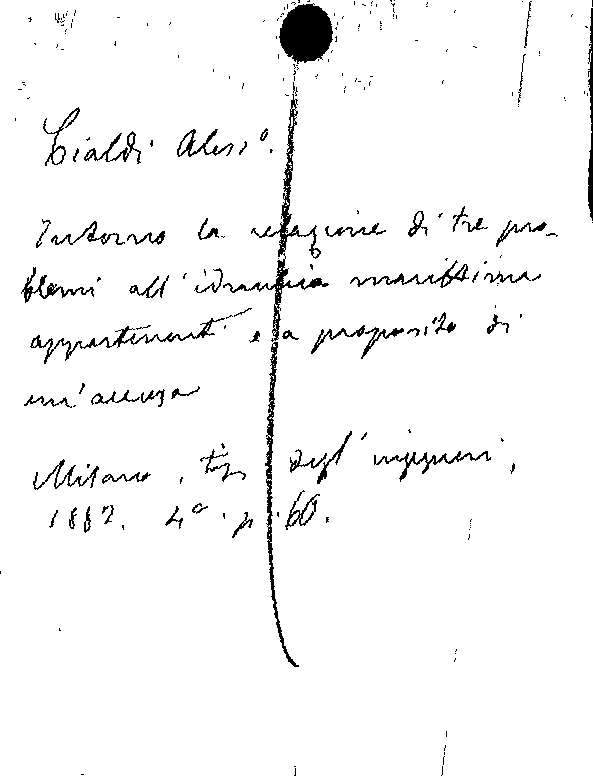 Cialdi Aless°.
Intorno la relazione di tre pro-
blemi all'idraulica marittima
appartenenti e a proposito di
un'accusa
Milano, tip. degl'ingegneri,
1882. 4° p. 60.